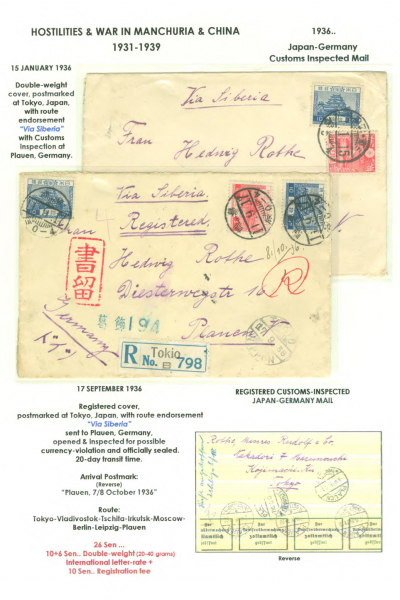 HOSTILITIES & WAR IN MANCHURIA & CHINA
1931-1939
1936..
Japan-Germany
Customs Inspected Mail
15 JANUARY 1936
Double-weight
cover, postmarked
at Tokyo, Japan,
with route
endorsement
"Via Siberia"
with Customs
Inspection at
Plauen, Germany.
Via Siberia
Frau Hedwig Rothe
Via Siberia.
Registered.
Frau
Hedwig Rothe
Diesterwegstr 16
Plauen V
Germany
書留
葛飾 194
R Tokio
No. B 798
R
17 SEPTEMBER 1936
Registered cover,
postmarked at Tokyo, Japan, with route endorsement
"Via Siberia"
sent to Plauen, Germany,
opened & Inspected for possible
currency-violation and officially sealed.
20-day transit time.
Arrival Postmark:
(Reverse)
"Plauen, 7/8 October 1936"
Route:
Tokyo-Vladivostok-Tschita-Irkutsk-Moscow-
Berlin-Leipzig-Plauen
26 Sen ...
10+6 Sen.. Double-weight (20-40 grams)
International letter-rate +
10 Sen.. Registration fee
REGISTERED CUSTOMS-INSPECTED
JAPAN-GERMANY MAIL
Tokyo
Reverse